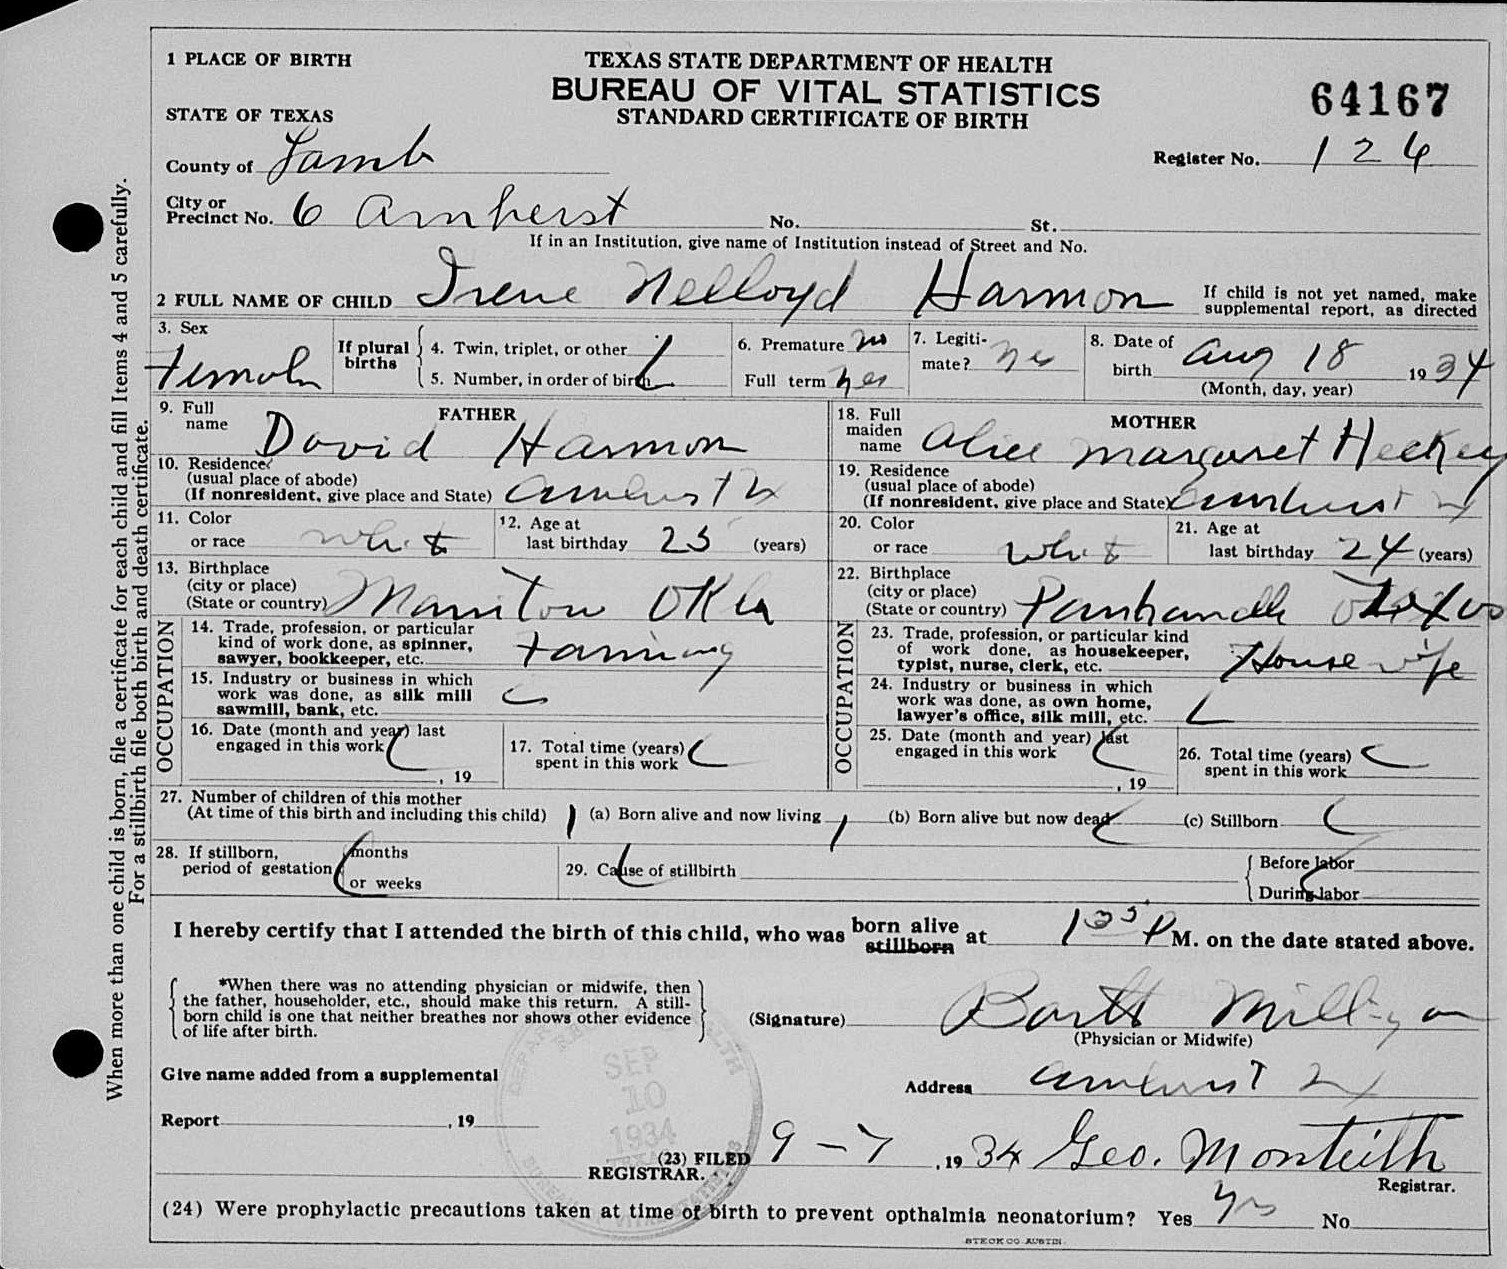 1 PLACE OF BIRTH
TEXAS STATE DEPARTMENT OF HEALTH
BUREAU OF VITAL STATISTICS
STANDARD CERTIFICATE OF BIRTH
64167
STATE OF TEXAS
County of Lamb
Register No. 126
City or Precinct No. 6 Amherst No. St.
If in an Institution, give name of Institution instead of Street and No.
2 FULL NAME OF CHILD Irene Nelloyd Harmon
If child is not yet named, make supplemental report, as directed
3. Sex Female
If plural births
4. Twin, triplet, or other
5. Number, in order of birth
6. Premature no
Full term yes
7. Legitimate? yes
8. Date of birth Aug 18 1934
(Month, day, year)
FATHER
9. Full name David Harmon
10. Residence (usual place of abode)
(If nonresident, give place and State) Amherst Tx
11. Color or race White
12. Age at last birthday 25 (years)
13. Birthplace (city or place)
(State or country) Manitou Okla
OCCUPATION
14. Trade, profession, or particular kind of work done, as spinner, sawyer, bookkeeper, etc. Farming
15. Industry or business in which work was done, as silk mill sawmill, bank, etc.
16. Date (month and year) last engaged in this work , 19
17. Total time (years) spent in this work
MOTHER
18. Full maiden name Alice Margaret
19. Residence (usual place of abode)
(If nonresident, give place and State) Amherst Tx
20. Color or race White
21. Age at last birthday 24 (years)
22. Birthplace (city or place)
(State or country) Panhandle Texas
OCCUPATION
23. Trade, profession, or particular kind of work done, as housekeeper, typist, nurse, clerk, etc. House wife
24. Industry or business in which work was done, as own home, lawyer's office, silk mill, etc.
25. Date (month and year) last engaged in this work , 19
26. Total time (years) spent in this work
27. Number of children of this mother
(At time of this birth and including this child) 1 (a) Born alive and now living 1 (b) Born alive but now dead (c) Stillborn
28. If stillborn, period of gestation months or weeks
29. Cause of stillbirth
Before labor
During labor
I hereby certify that I attended the birth of this child, who was born alive stillborn at P M. on the date stated above.
*When there was no attending physician or midwife, then
the father, householder, etc., should make this return. A still-
born child is one that neither breathes nor shows other evidence
of life after birth.
(Signature) Bartt Milligan
(Physician or Midwife)
Give name added from a supplemental
Address Amherst Tx
Report , 19
SEP
10
1934
(23) FILED 9-7 , 1934 Geo. Monteith
REGISTRAR.
Registrar.
(24) Were prophylactic precautions taken at time of birth to prevent opthalmia neonatorium? Yes yes No
STECK CO AUSTIN
When more than one child is born, file a certificate for each child and fill Items 4 and 5 carefully.
For a stillbirth file both birth and death certificate.